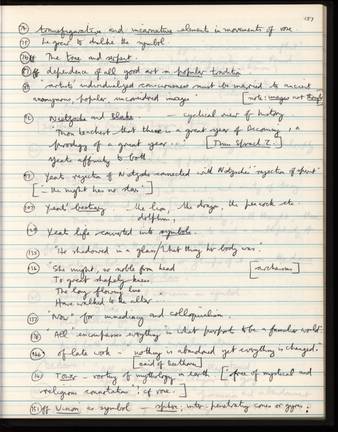 157
74 transfiguration and incarnation element in movements of rose
75 he grew to dislike the symbol.
76ff The tone and serpent.
81ff dependence of all good art on popular tradition
89 artists' individualized consciousness must be married to ancient
anonymous, popular, unconscious images [note: images not thought]
92 Nietzsche and Blake - cyclical view of history
"Thou teachest that there is a great year of Becoming, a
prodigy of a great year..." [Thus Spake Z.]
Yeats affinity to both
97 Yeats' rejection of N connected with N's "rejection of spirit"
[- the night has no stars.]
107 Yeats' bestiary the lion, the dragon, the peacock etc
dolphin,
109 Yeats' life converted into symbols.
135 "He shadowed in a glass / What thing her body was."
136 "She might, so noble from head [archaism]
To great shapely knees
The long flowing line
Have walked to the altar
137 "Now" for immediacy and colloquialism.
138 "All" encompasses everything in what purports to be a familiar world.
of late work - "nothing is abandoned yet everything is changed."
[end of section]
Tower - rooting of mythology in earth ["free of mystical and
religious connotation": cf rose.]
151ff Vision as symbol - sphere, inter-penetrating cones or gyres;